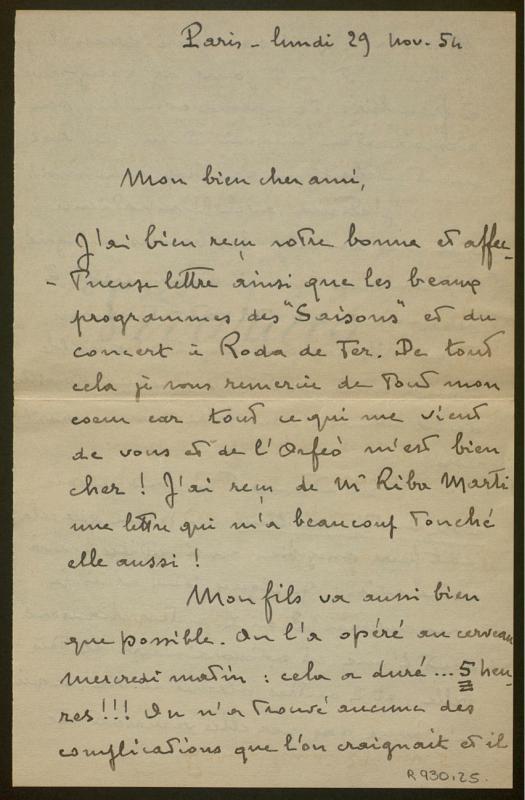 Paris - lundi 29 nov. 54
Mon bien cher ami,
J'ai bien reçu votre bonne et affec-
-tueuse lettre ainsi que les beaux
programmes des "Saisons" et du
concert à Roda de Ter. De tout
cela je vous remercie de tout mon
coeur car tout ce qui me vient
de vous et de l'Orfeò m'est bien
cher ! J'ai reçu de Mr Riba Marti
une lettre qui m'a beaucoup touché
elle aussi !
Mon fils va aussi bien
que possible. On l'a opéré au cerveau
mercredi matin : cela a duré ... 5 heu-
res !!! On n'a trouvé aucune des
complications que l'on craignait et il
R 930.25.